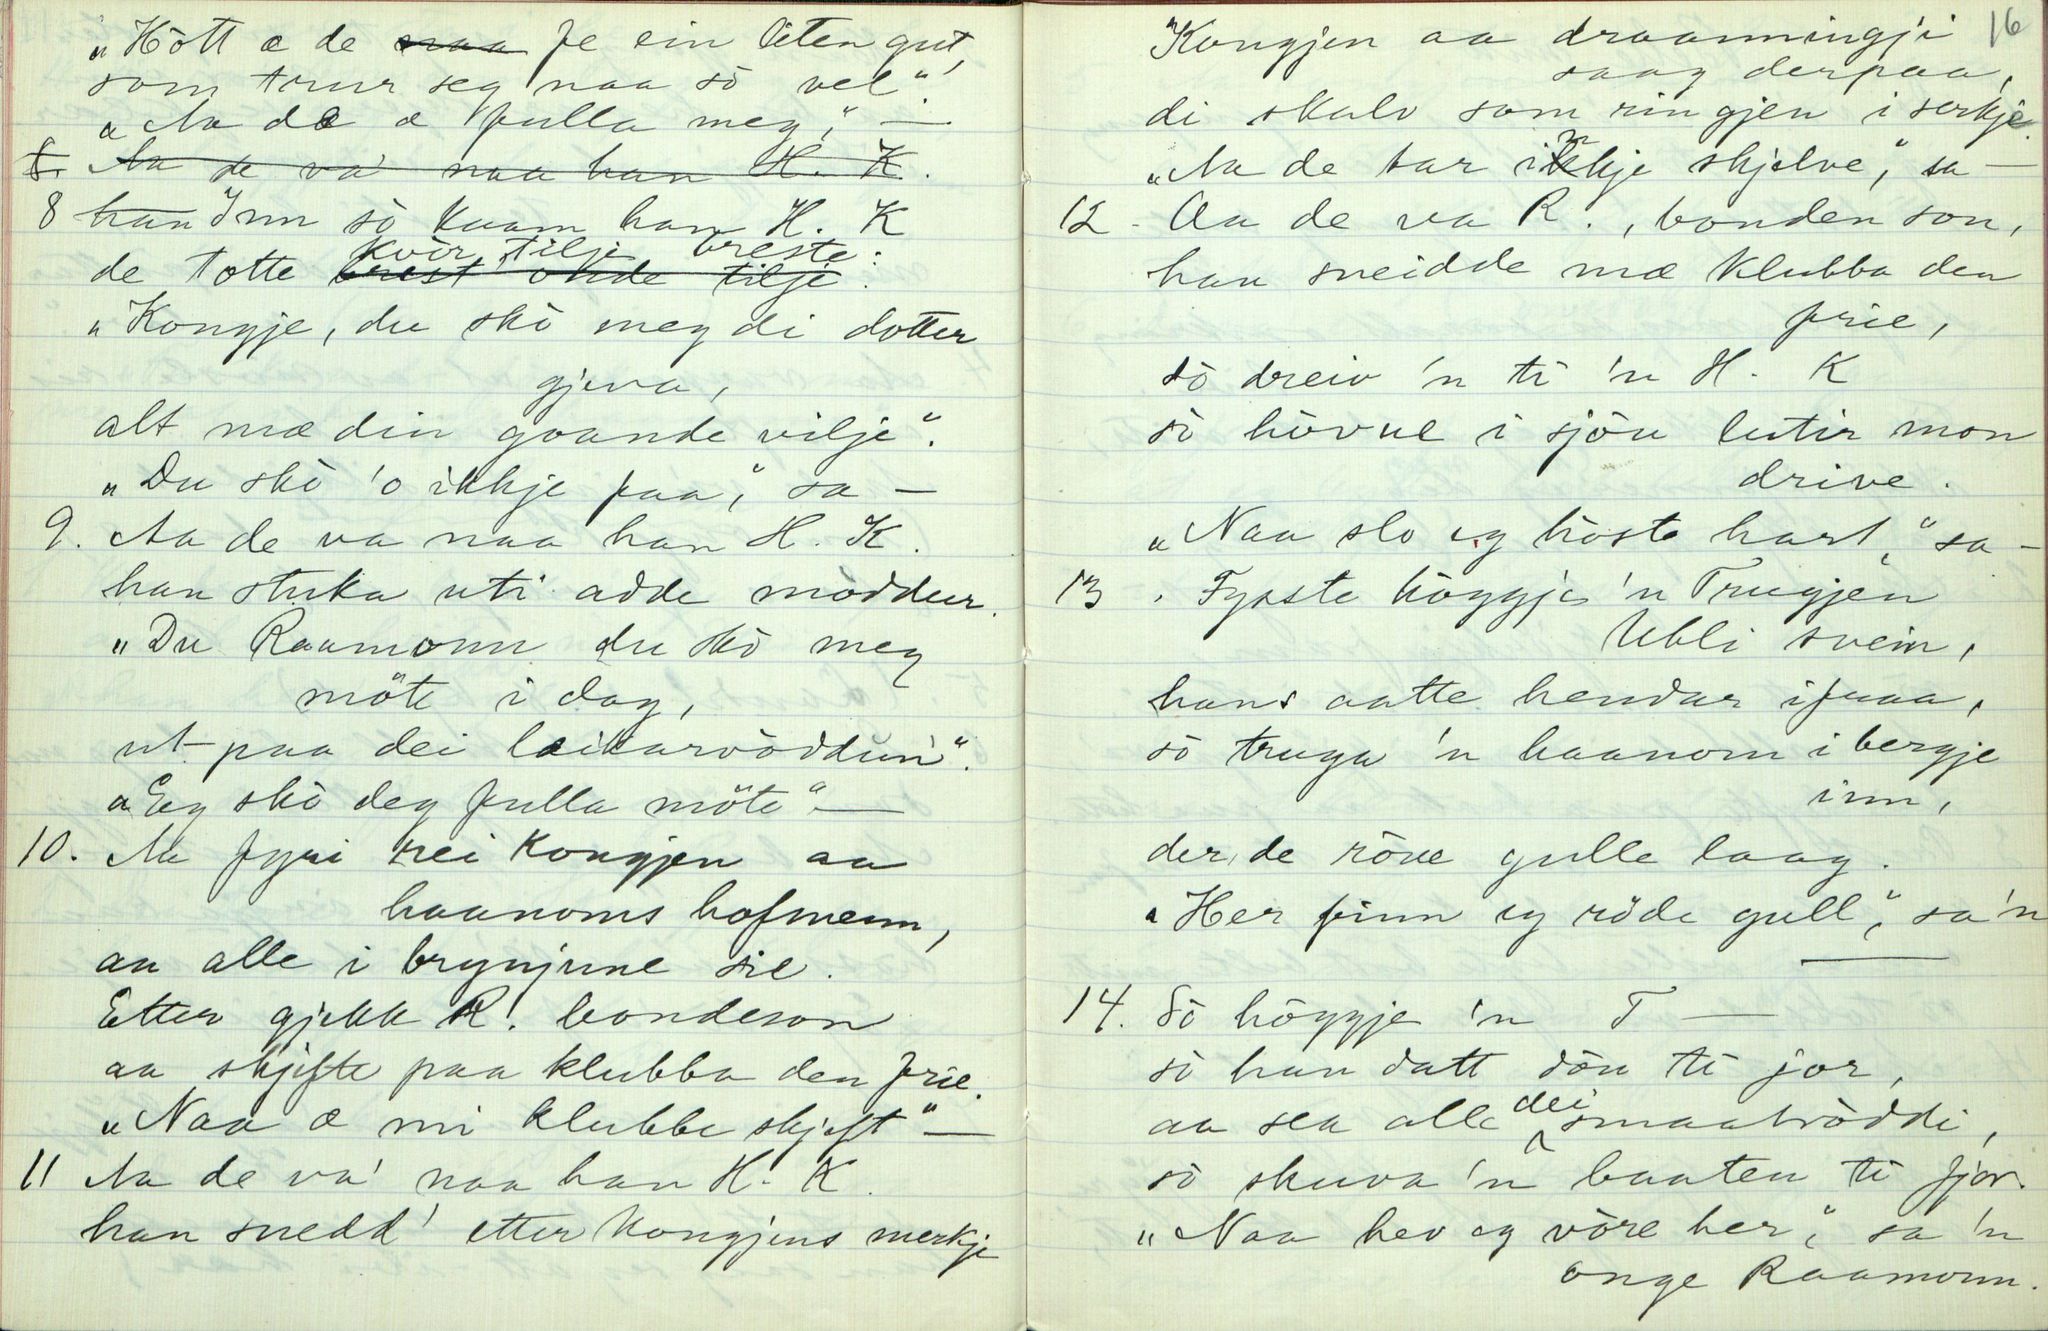 „Hòtt æ de ~~naa~~ fe ein liten gut,
som trur seg naa sò vel“.
„Aa de æ fulla meg,“ —
~~8. Aa de va' naa han H. K.~~
8 ~~han~~ Inn sò kaam han H. K
kvòr tilje breste:
de totte ~~brest onde tilje~~.
„Kongje, du skò meg di dotter
gjeva,
alt mæ din goande vilje“.
„Du skò 'o ikkje faa,“ sa —
9. Aa de va naa han H. K.
han stuka uti adde mòddur.
„Du Raamonn du skò meg
möte i dag,
ut paa dei leikarvòddun“.
„Eg skò deg fulla möte“ —
10. Aa fyri rei Kongjen aa
haanoms hofmenn,
aa alle i brynjune sie.
Etter gjekk R. bondeson
aa skjefte paa klubba den frie.
„Naa æ mi klubbe skjeft“ —
11 Aa de va' naa han H. K.
han snedd' etter Kongjens merkje
16
Kongjen aa draanningji
saag derpaa,
di skalv som ringjen i serkje.
„Aa de tar inkje skjelve,“ sa —
12 - Aa de va R., bonden son,
han sneidde mæ klubba den
frie,
sò dreiv 'n ti 'n H. K
sò hòvue i sjön lutir mon
drive.
„Naa slo eg höste hart,“ sa —
13. Fyste höggje 'n Trugjen
Ubli svein,
hans aatte hendar ifraa,
sò truga 'n haanom i bergje
inn,
der de röue gulle laag.
„Her finn eg röde gull,“ sa 'n
14. Sò höggje 'n T —
sò han datt dön ti jor,
aa sea alle dei smaatròddi,
sò skuva 'n baaten ti fjor.
„Naa hev eg vòre her,“ sa 'n
onge Raamonn.